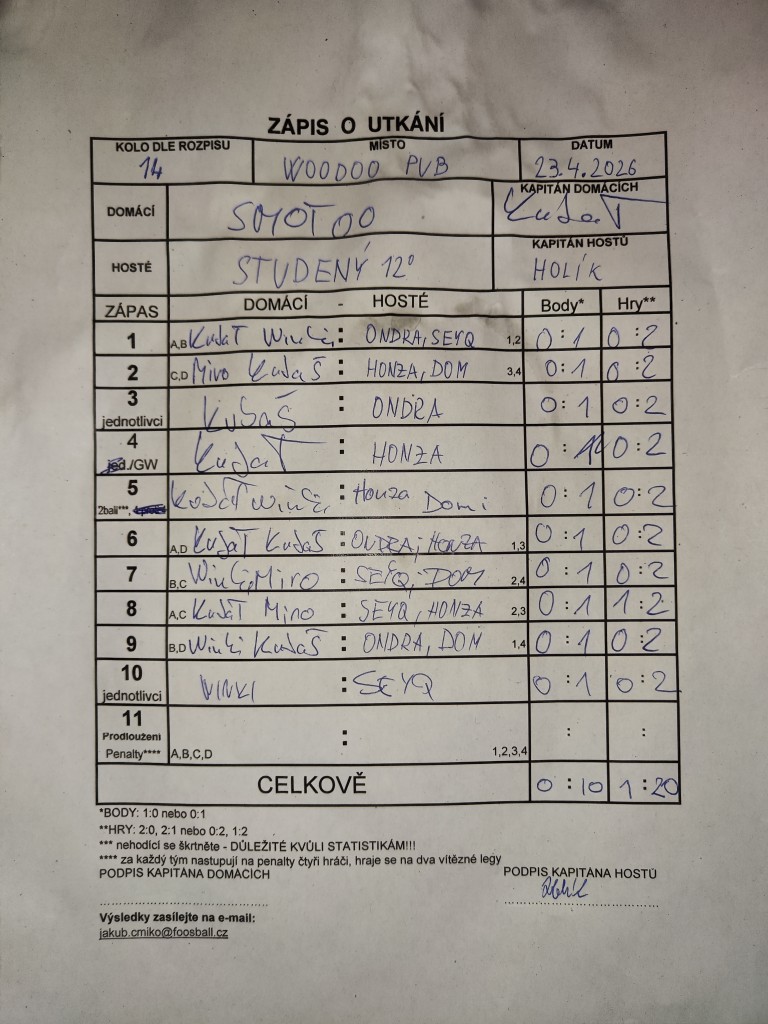 ZÁPIS O UTKÁNÍ
KOLO DLE ROZPISU MÍSTO DATUM
14 WOODOO PUB 23.4.2026
DOMÁCÍ SMOTOO KAPITÁN DOMÁCÍCH
KubaT
HOSTÉ STUDENÝ 12° KAPITÁN HOSTŮ
HOLÍK
ZÁPAS DOMÁCÍ - HOSTÉ Body* Hry**
1 A,B KubaT Winki : ONDRA, SEYQ 1,2 0:1 0:2
2 C,D Miro KubaŠ : HONZA, DOM 3,4 0:1 0:2
3 jednotlivci KubaŠ : ONDRA 0:1 0:2
4 jed./GW KubaT : HONZA 0:1 0:2
5 2balí***, KubaT Winki : Honza Domi 0:1 0:2
6 A,D KubaT KubaŠ : ONDRA, HONZA 1,3 0:1 0:2
7 B,C Winki, Miro : SEYQ, DOM 2,4 0:1 0:2
8 A,C KubaT Miro : SEYQ, HONZA 2,3 0:1 1:2
9 B,D Winki KubaŠ : ONDRA, DOM 1,4 0:1 0:2
10 jednotlivci WINKI : SEYQ 0:1 0:2
11 Prodloužení Penalty**** A,B,C,D : 1,2,3,4 : :
CELKOVĚ 0:10 1:20
*BODY: 1:0 nebo 0:1
**HRY: 2:0, 2:1 nebo 0:2, 1:2
*** nehodící se škrtněte - DŮLEŽITÉ KVŮLI STATISTIKÁM!!!
**** za každý tým nastupují na penalty čtyři hráči, hraje se na dva vítězné legy
PODPIS KAPITÁNA DOMÁCÍCH PODPIS KAPITÁNA HOSTŮ
Výsledky zasílejte na e-mail:
jakub.cmiko@foosball.cz